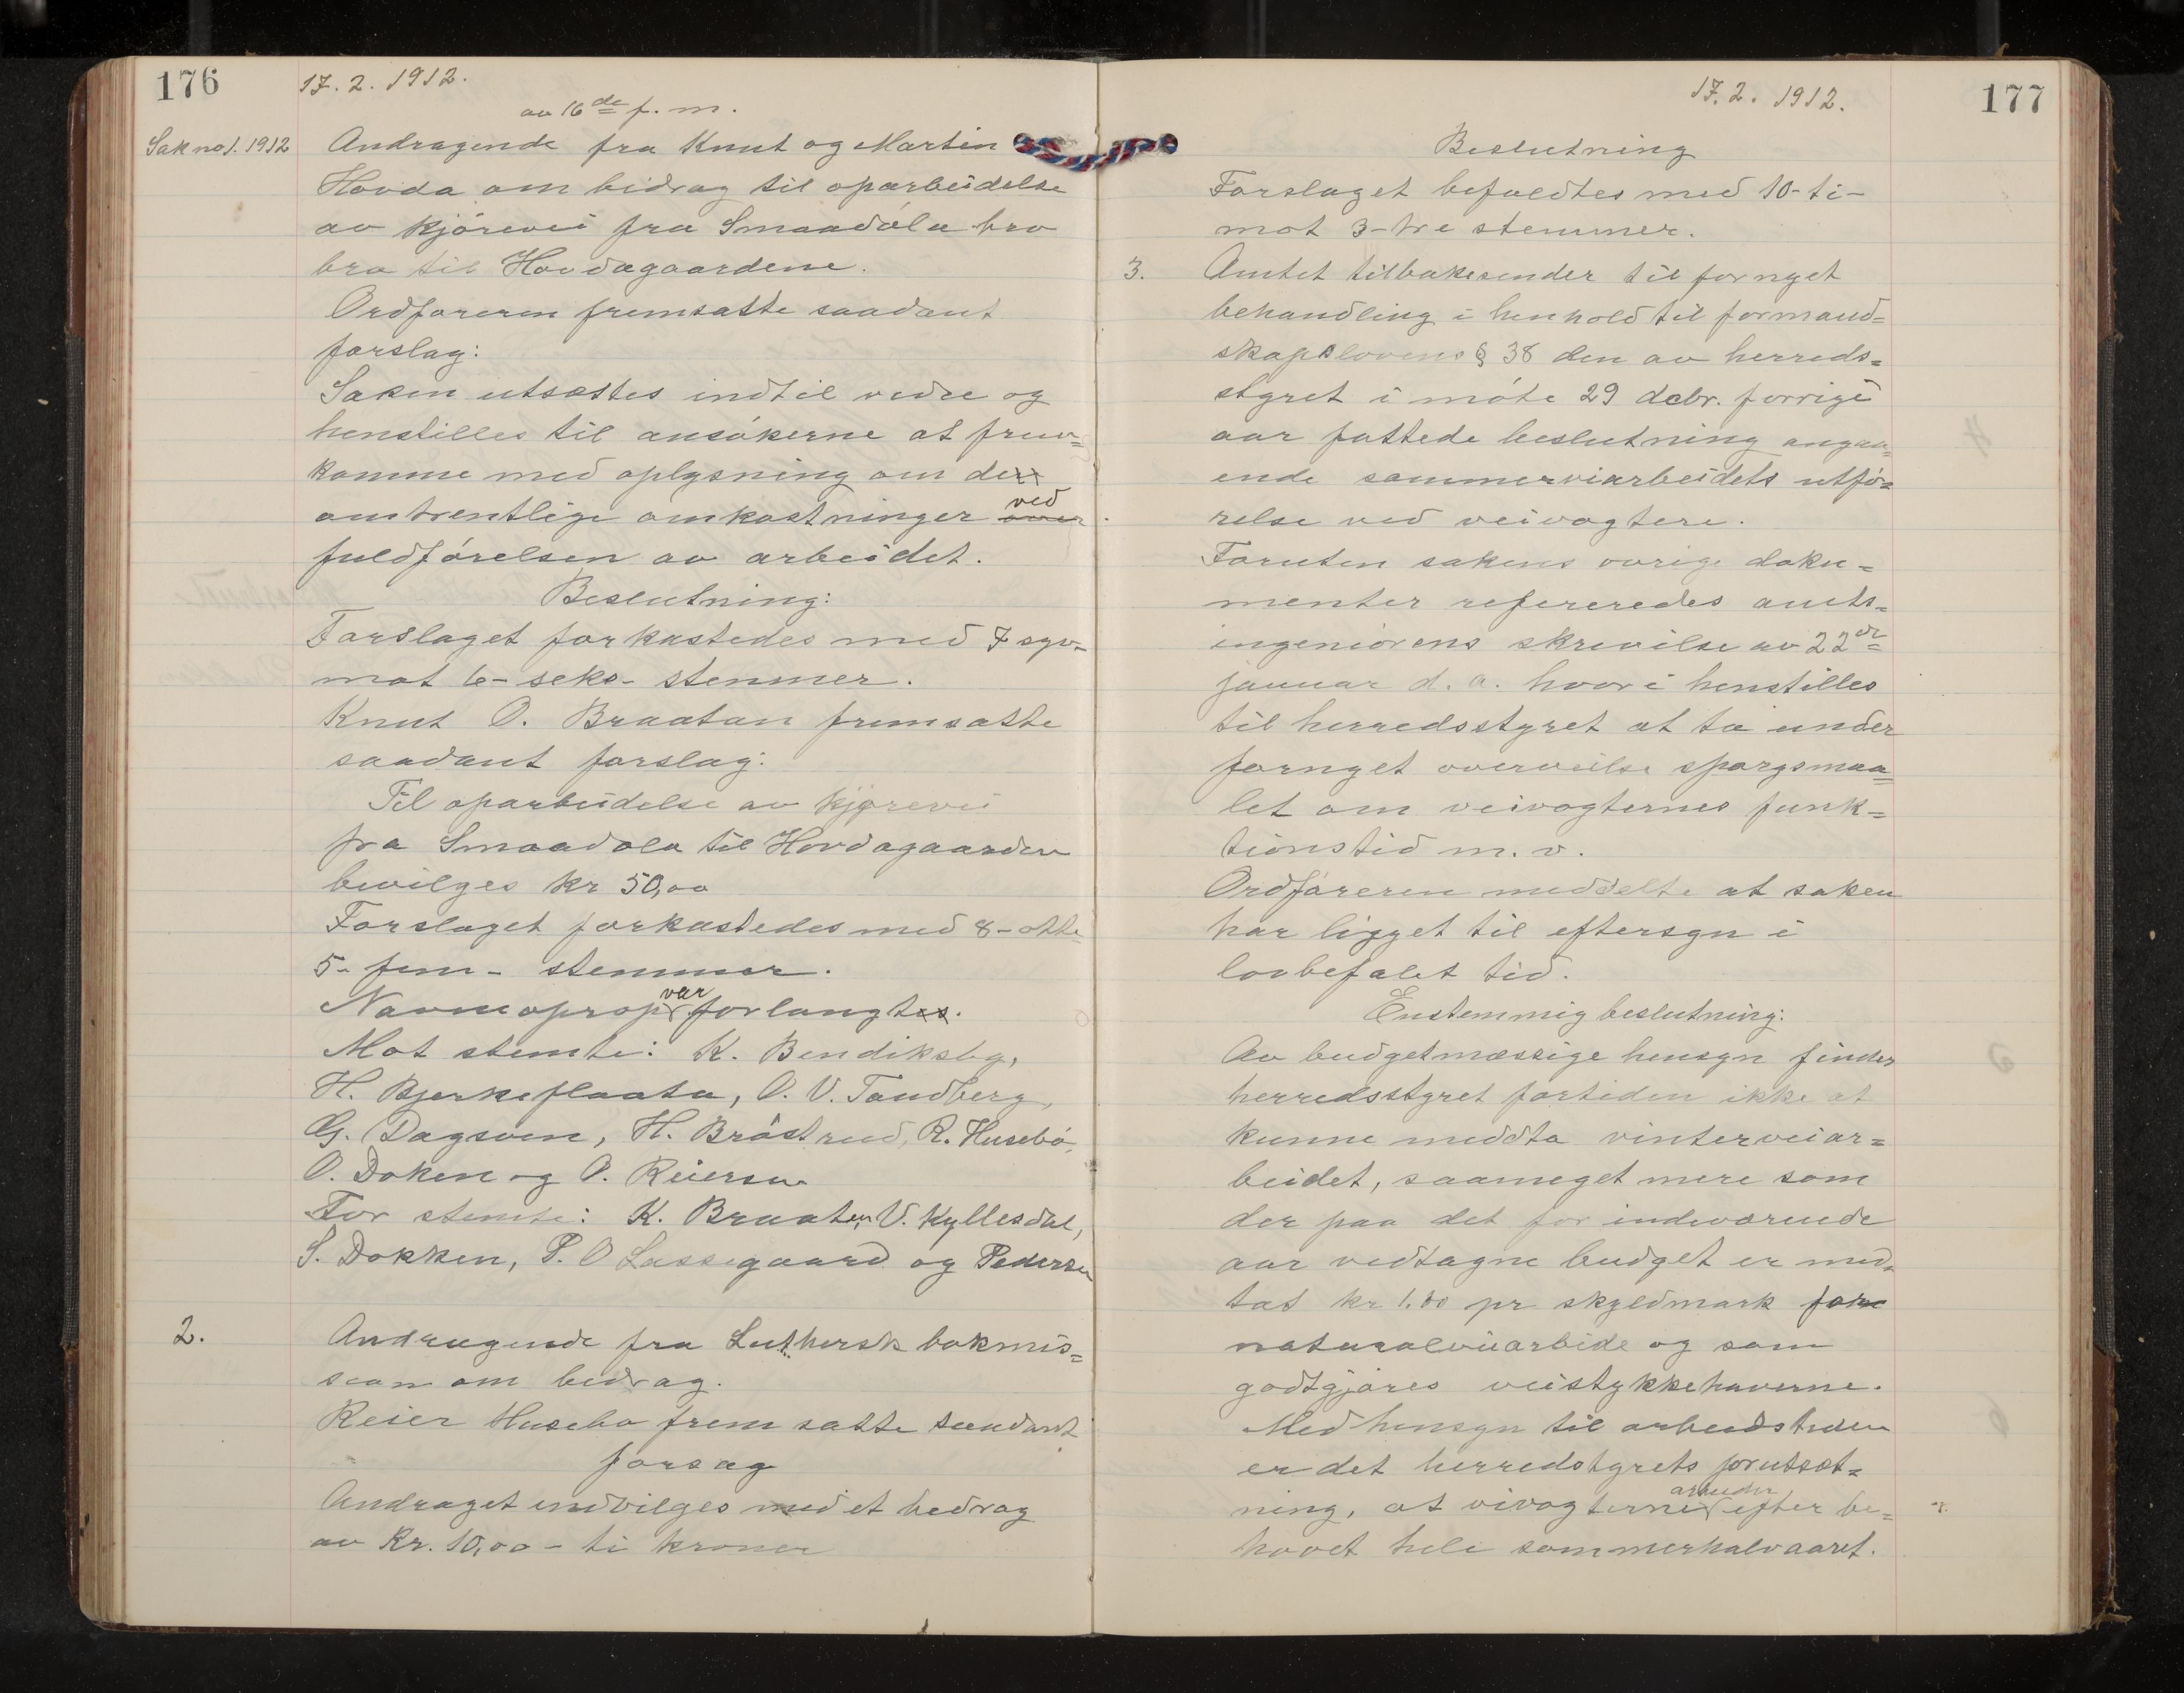 176
17. 2. 1912.
av 16de f. m.
Sak no 1. 1912
Andragende fra Knut og Martin
Hovda om bidrag til oparbeidelse
av kjörevei fra Smaadöla bro
bro til Hovdagaardene.
Ordföreren fremsatte saadant
forslag:
Saken utsættes indtil videre og
henstilles til ansökerne at frem=
komme med oplysning om de
omtrentlige omkostninger ved
fuldförelsen av arbeidet.
Beslutning:
Forslaget forkastedes med 7 syv-
mot 6- seks- stemmer.
Knut O. Braatan fremsatte
saadant forslag:
Til oparbeidelse av kjørevei
fra Smaadøla til Hovdagaarden
bevilges kr 50,00
Forslaget forkastedes med 8-otte
5- fem - stemmer.
Navneoprop var forlangt.
Mot stemte: K. Bendiksby,
H. Bjerkeflaata, O. V. Tandberg,
G. Dagsven, H. Bråstrud, R. Husebö,
O. Doken og O. Reiersen
For stemte: K. Braaten, V. Kyllesdal,
S. Dokken, P. O Lassegaard og Pedersen
2.
Andragende fra Luthersk bokmis=
sion om bidrag.
Reier Husebø fremsatte saadant
forsag
Andraget indvilges med et bedrag
av Kr. 10,00 - ti kroner
17. 2. 1912.
177
Beslutning
Forslaget bifaldtes med 10-ti-
mot 3-tre stemmer.
3.
Amtet tilbakesender til fornyet
behandling i henhold til formand=
skapslovens § 38 den av herreds=
styret i möte 29 debr. forrige
aar fattede beslutning angaa=
ende sommerveiarbeidets utfö=
relse ved veivogtere.
Foruten sakens övrige doku=
menter refereredes amts=
ingeniörens skrivelse av 22de
januar d. a. hvori henstilles
til herredsstyret at ta under
fornyet overveilse spørgsmaa=
let om veivogternes funk=
tionstid m. v.
Ordföreren meddelte at saken
har ligget til eftersyn i
lovbefalet tid.
Enstemmig beslutning:
Av budgetmæssige hensyn finder
herredsstyret fortiden ikke at
kunne meddta vinterveiar=
beidet, saameget mere som
der paa det for indeværende
aar vedtagne budget er med=
tat kr 1.00 pr skyldmark for
naturalveiarbeide og som
godtgjøres veistykkehaverne.
Med hensyn til arbeidstiden
er det herredstyrets forutsæt=
ning, at vivogterne arbeider efter be=
hovet hele sommerhalvaaret.